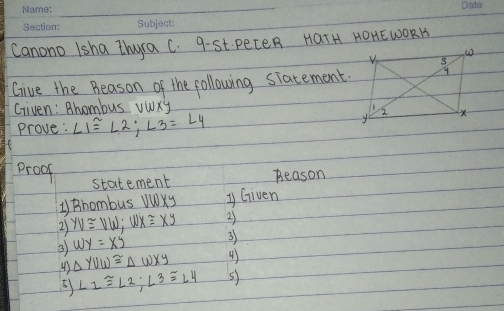 Name: Date
Section: Subject:
Canono Isha Thyra C. 9-St. Peter MATH HOMEWORK
Give the Reason of the following Statement.
Given: Rhombus VWXY
Prove: ∠1 ≅ ∠2 ; ∠3 = ∠4
V W
3
4
1
2
Y X
Proof
Statement Reason
1) Rhombus VWXY 1) Given
2) YV ≅ VW; WX ≅ XY 2)
3) WY = XY 3)
4) △ YVW ≅ △ WXY 4)
5) ∠1 ≅ ∠2 ; ∠3 ≅ ∠4 5)